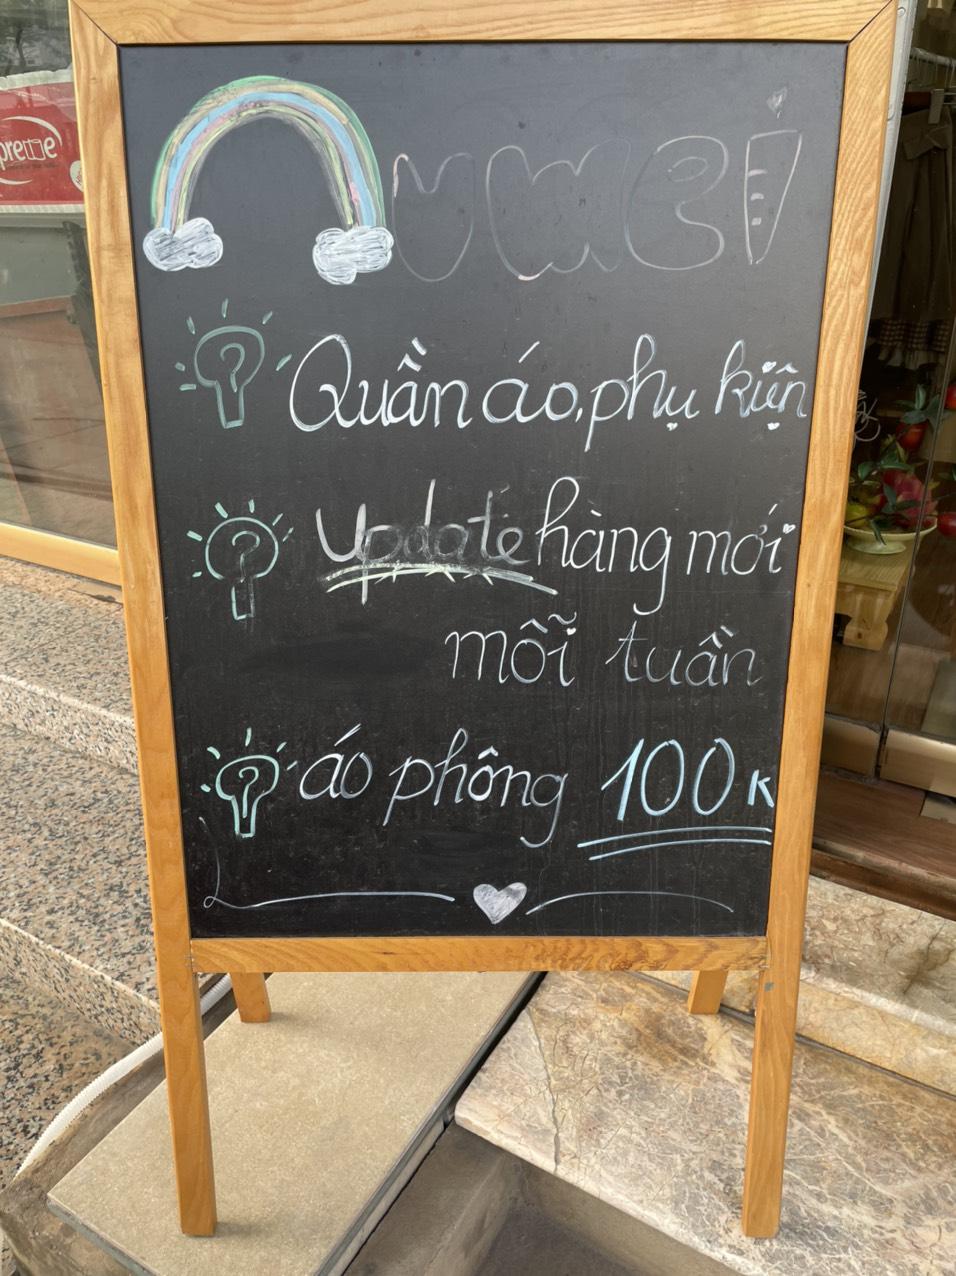 Quần áo, phụ kiện
update hàng mới
mỗi tuần
áo phông 100K